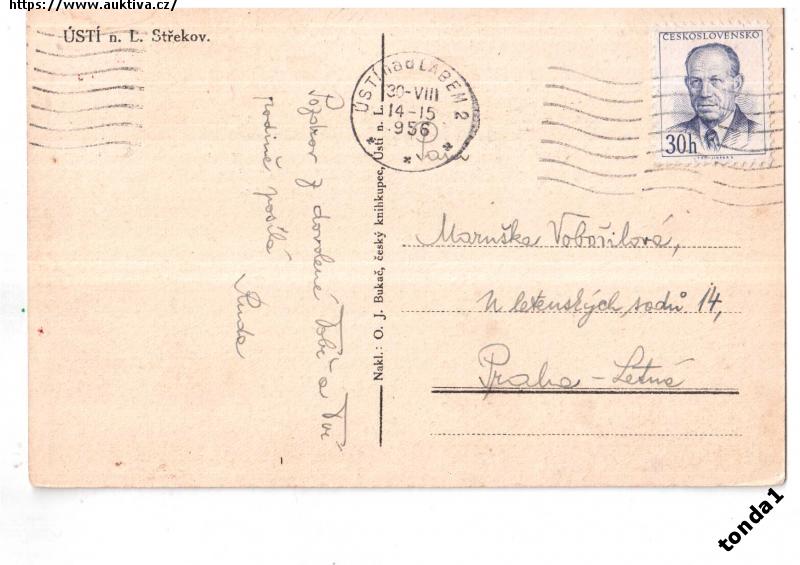 https://www.auktiva.cz/
ÚSTÍ n. L. Střekov.
Pozdrav z dovolené Tobě a Tvé
rodině posílá
Ruda
Nakl.: O. J. Bukač, český knihkupec, Ústí n. L.
ÚSTÍ nad LABEM 2
30-VIII
14-15
956
ČESKOSLOVENSKO
30h
Paní
Maruška Vobořilová,
U letenských sadů 14,
Praha - Letná
tonda1